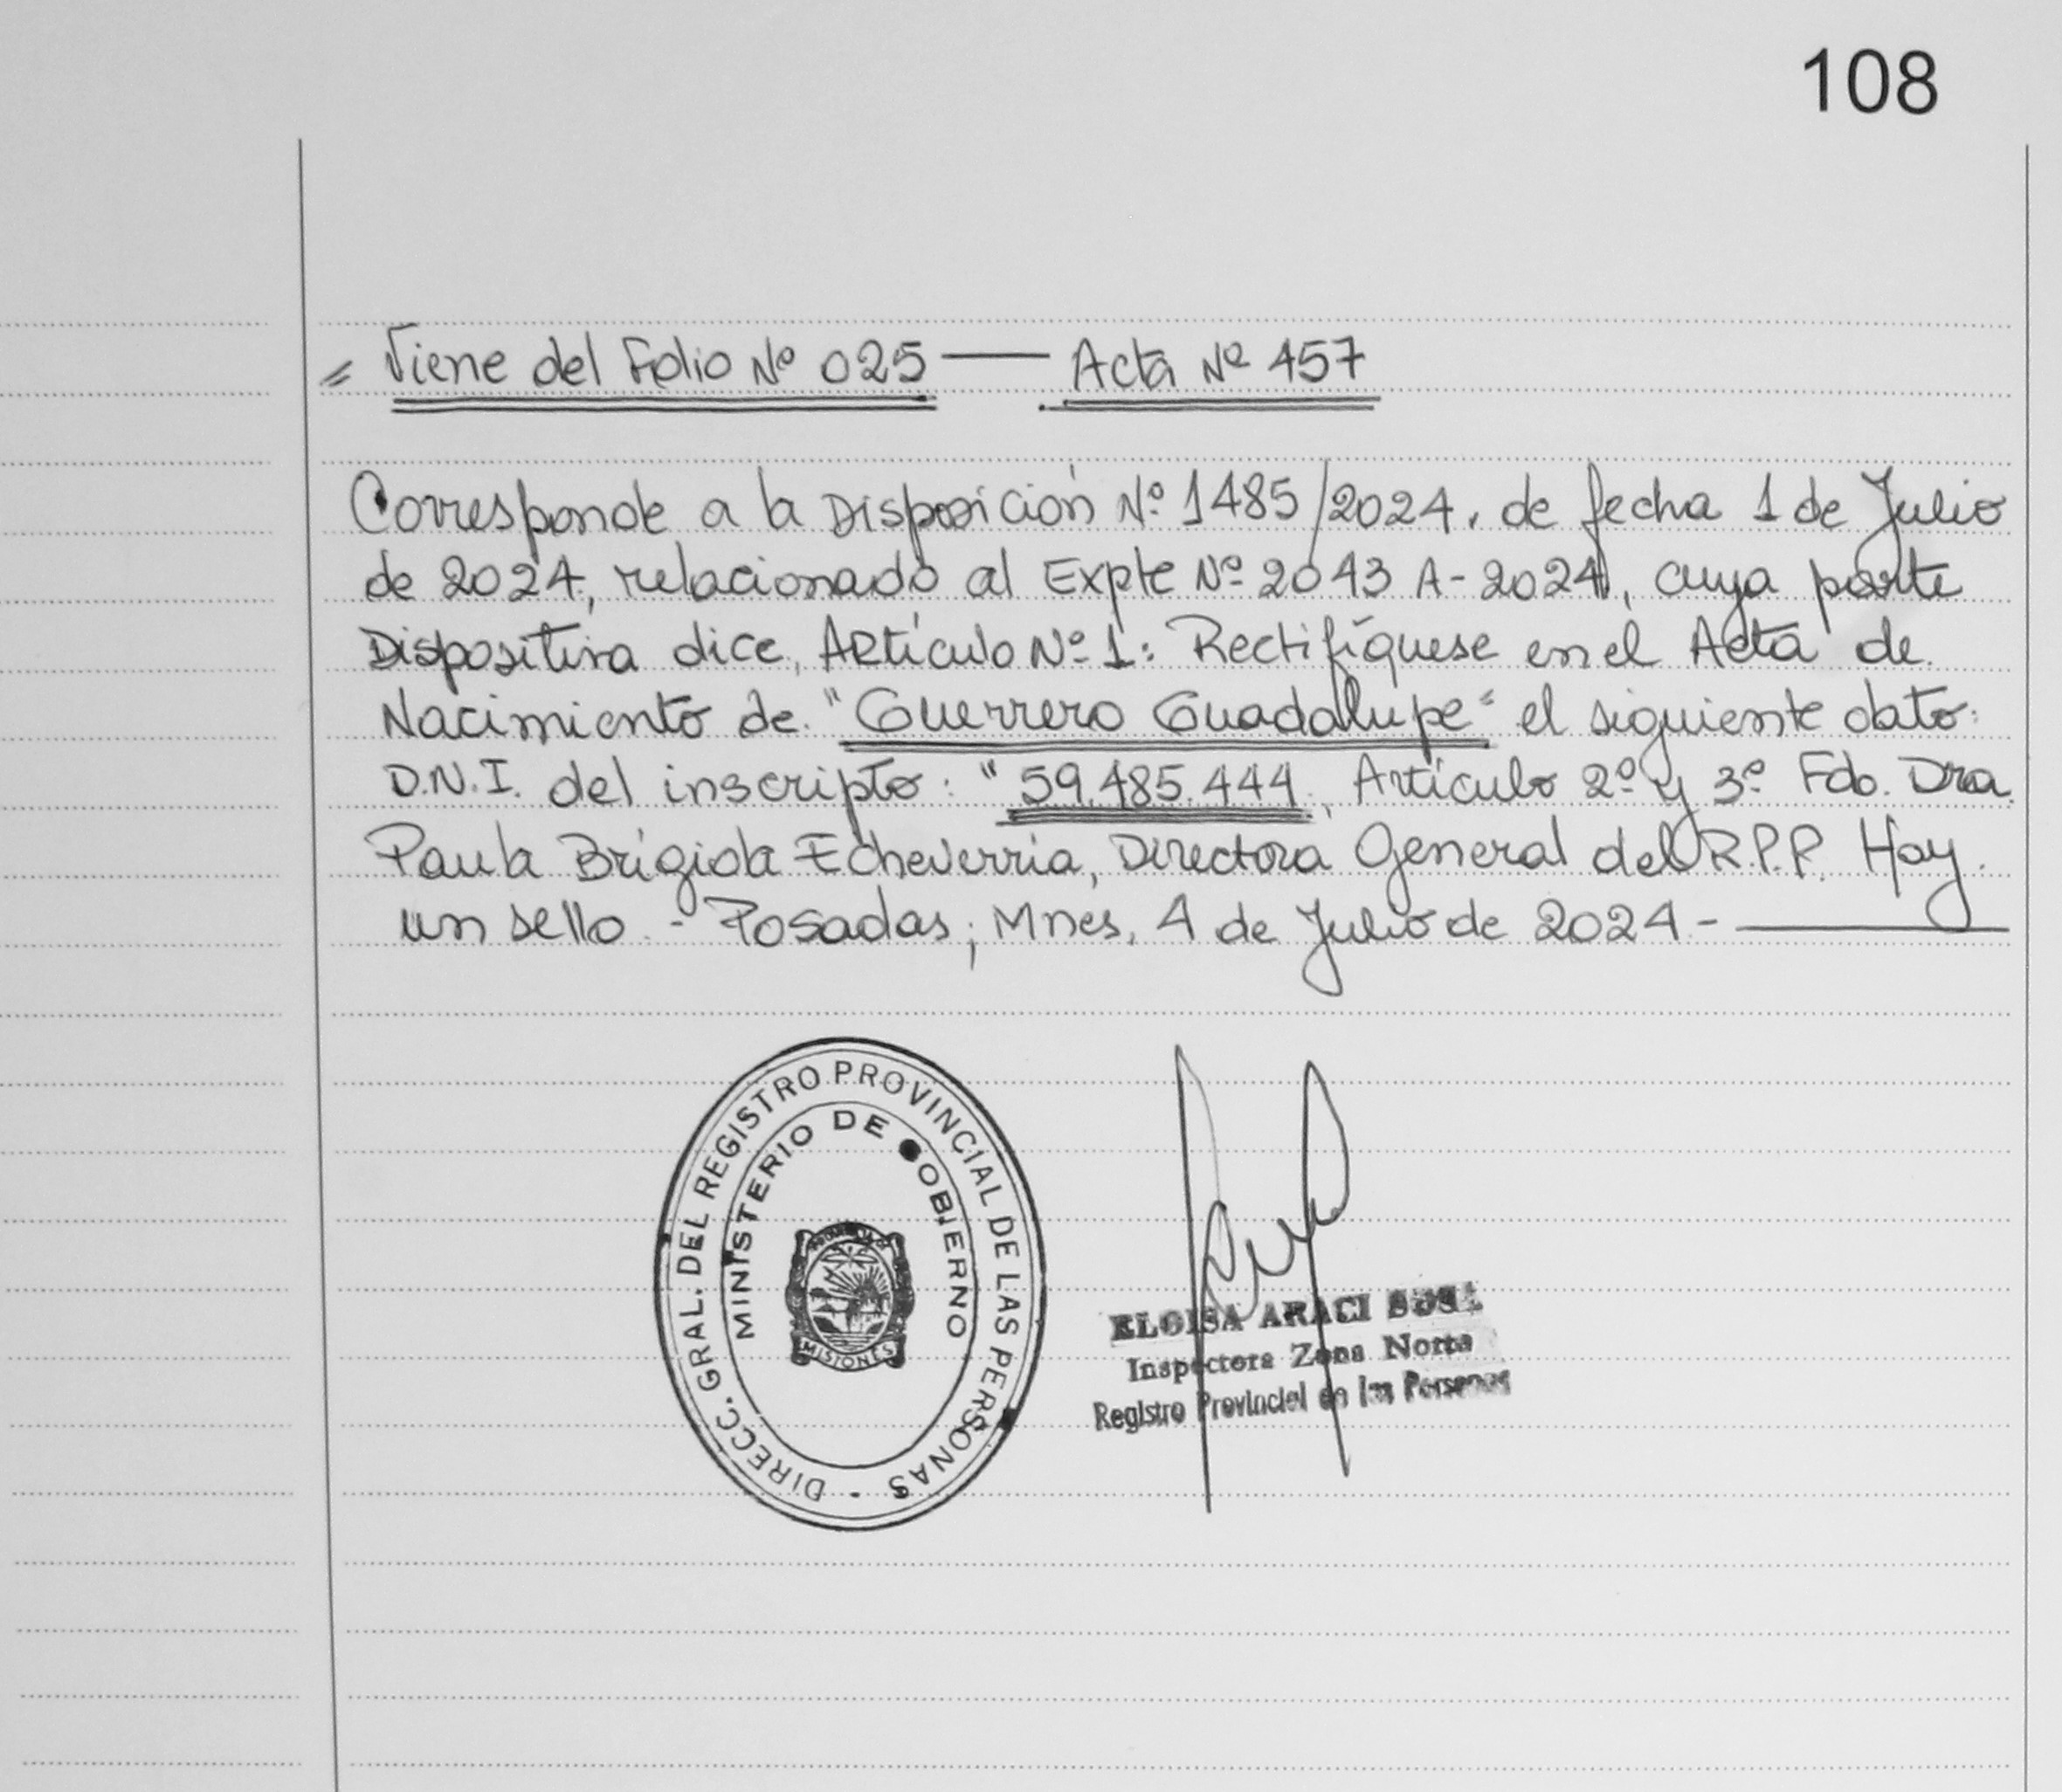 108
= Viene del Folio Nº 025 — Acta Nº 457
Corresponde a la Disposición Nº 1485/2024, de fecha 1 de Julio
de 2024, relacionado al Expte Nº 2043 A-2024, cuya parte
Dispositiva dice, Artículo Nº 1: Rectifíquese en el Acta de
Nacimiento de "Guerrero Guadalupe" el siguiente dato:
D.N.I. del inscripto: "59.485.444, Artículo 2º y 3º Fdo. Dra.
Paula Brígida Echeverria, Directora General del R.P.P. Hay
un sello - Posadas; Mnes, 4 de Julio de 2024 -
DIRECC. GRAL. DEL REGISTRO PROVINCIAL DE LAS PERSONAS -
MINISTERIO DE GOBIERNO
MISIONES
ELOISA ARACI
Inspectora Zona Norte
Registro Provincial de las Personas